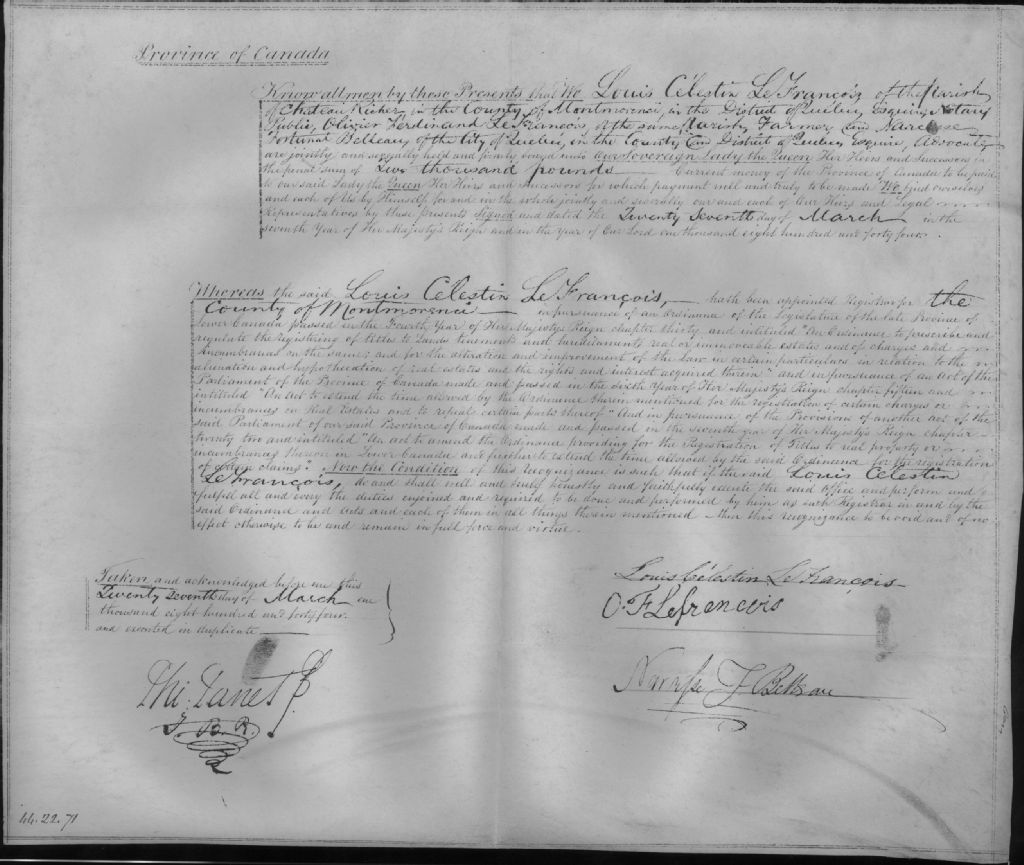 Province of Canada
Know all men by these Presents that We Louis Célestin Le François of the Parish
of Chateau Richer, in the County of Montmorenci, in the District of Quebec, Esquire, Notary
Public, Olivier Ferdinand Le Francois, of the same Parish, Farmer, and Narcisse
Fortunat Belleau, of the City of Quebec, in the County and District of Quebec Esquire, Advocate
are jointly and severally held and firmly bound unto Our Sovereign Lady the Queen Her Heirs and Successors in
the penal sum of Two thousand pounds Current money of the Province of Canada to be paid
to our said Lady the Queen Her Heirs and successors for which payment well and truly to be made We bind ourselves
and each of Us by Himself, for and in the whole jointly and severally our and each of Our Heirs and Legal
Representatives by these presents Signed and dated the Twenty Seventh day of March in the
Seventh Year of Her Majesty's Reign and in the Year of Our Lord one thousand eight hundred and forty four.
Whereas the said Louis Célestin Le François, hath been appointed Registrar for the
County of Montmorenci in pursuance of an Ordinance of the Legislature of the late Province of
Lower Canada passed in the Fourth Year of Her Majestys Reign chapter thirty and intituled "An Ordinance to prescribe and
regulate the Registering of titles to Lands tenements and hereditaments real or immoveable estates and of charges and
incumbrances on the same; and for the alteration and improvement of the Law in certain particulars in relation to the
alienation and hypothecation of real estates and the rights and interest acquired therein" and in pursuance of an Act of the
Parliament of the Province of Canada made and passed in the sixth Year of Her Majesty's Reign chapter fifteen and
intituled "An Act to extend the time allowed by the Ordinance therein mentioned for the registration of certain charges or
incumbrances on Real Estates and to repeal certain parts thereof" And in pursuance of the Provisions of another Act of the
said Parliament of our said Province of Canada made and passed in the seventh year of Her Majesty's Reign chapter
twenty two and intituled "An act to amend the Ordinance providing for the Registration of Titles to real property or
incumbrances thereon in Lower Canada and further to extend the time allowed by the said Ordinance for the registration
of certain claims". Now the Condition of this recognizance is such that if the said Louis Célestin
Le François, do and shall well and truly honestly and faithfully execute the said Office and perform and
fulfil all and every the duties enjoined and required to be done and performed by him as such Registrar in and by the
said Ordinance and Acts and each of them in all things therein mentioned then this recognizance to be void and of no
effect otherwise to be and remain in full force and virtue.
Taken and acknowledged before me this
Twenty Seventh day of March one
thousand eight hundred and forty four.
and executed in duplicate
Louis Célestin Le François
O. F. Lefrencois
Narcisse F Belleau
J. B. R.
44.22.71